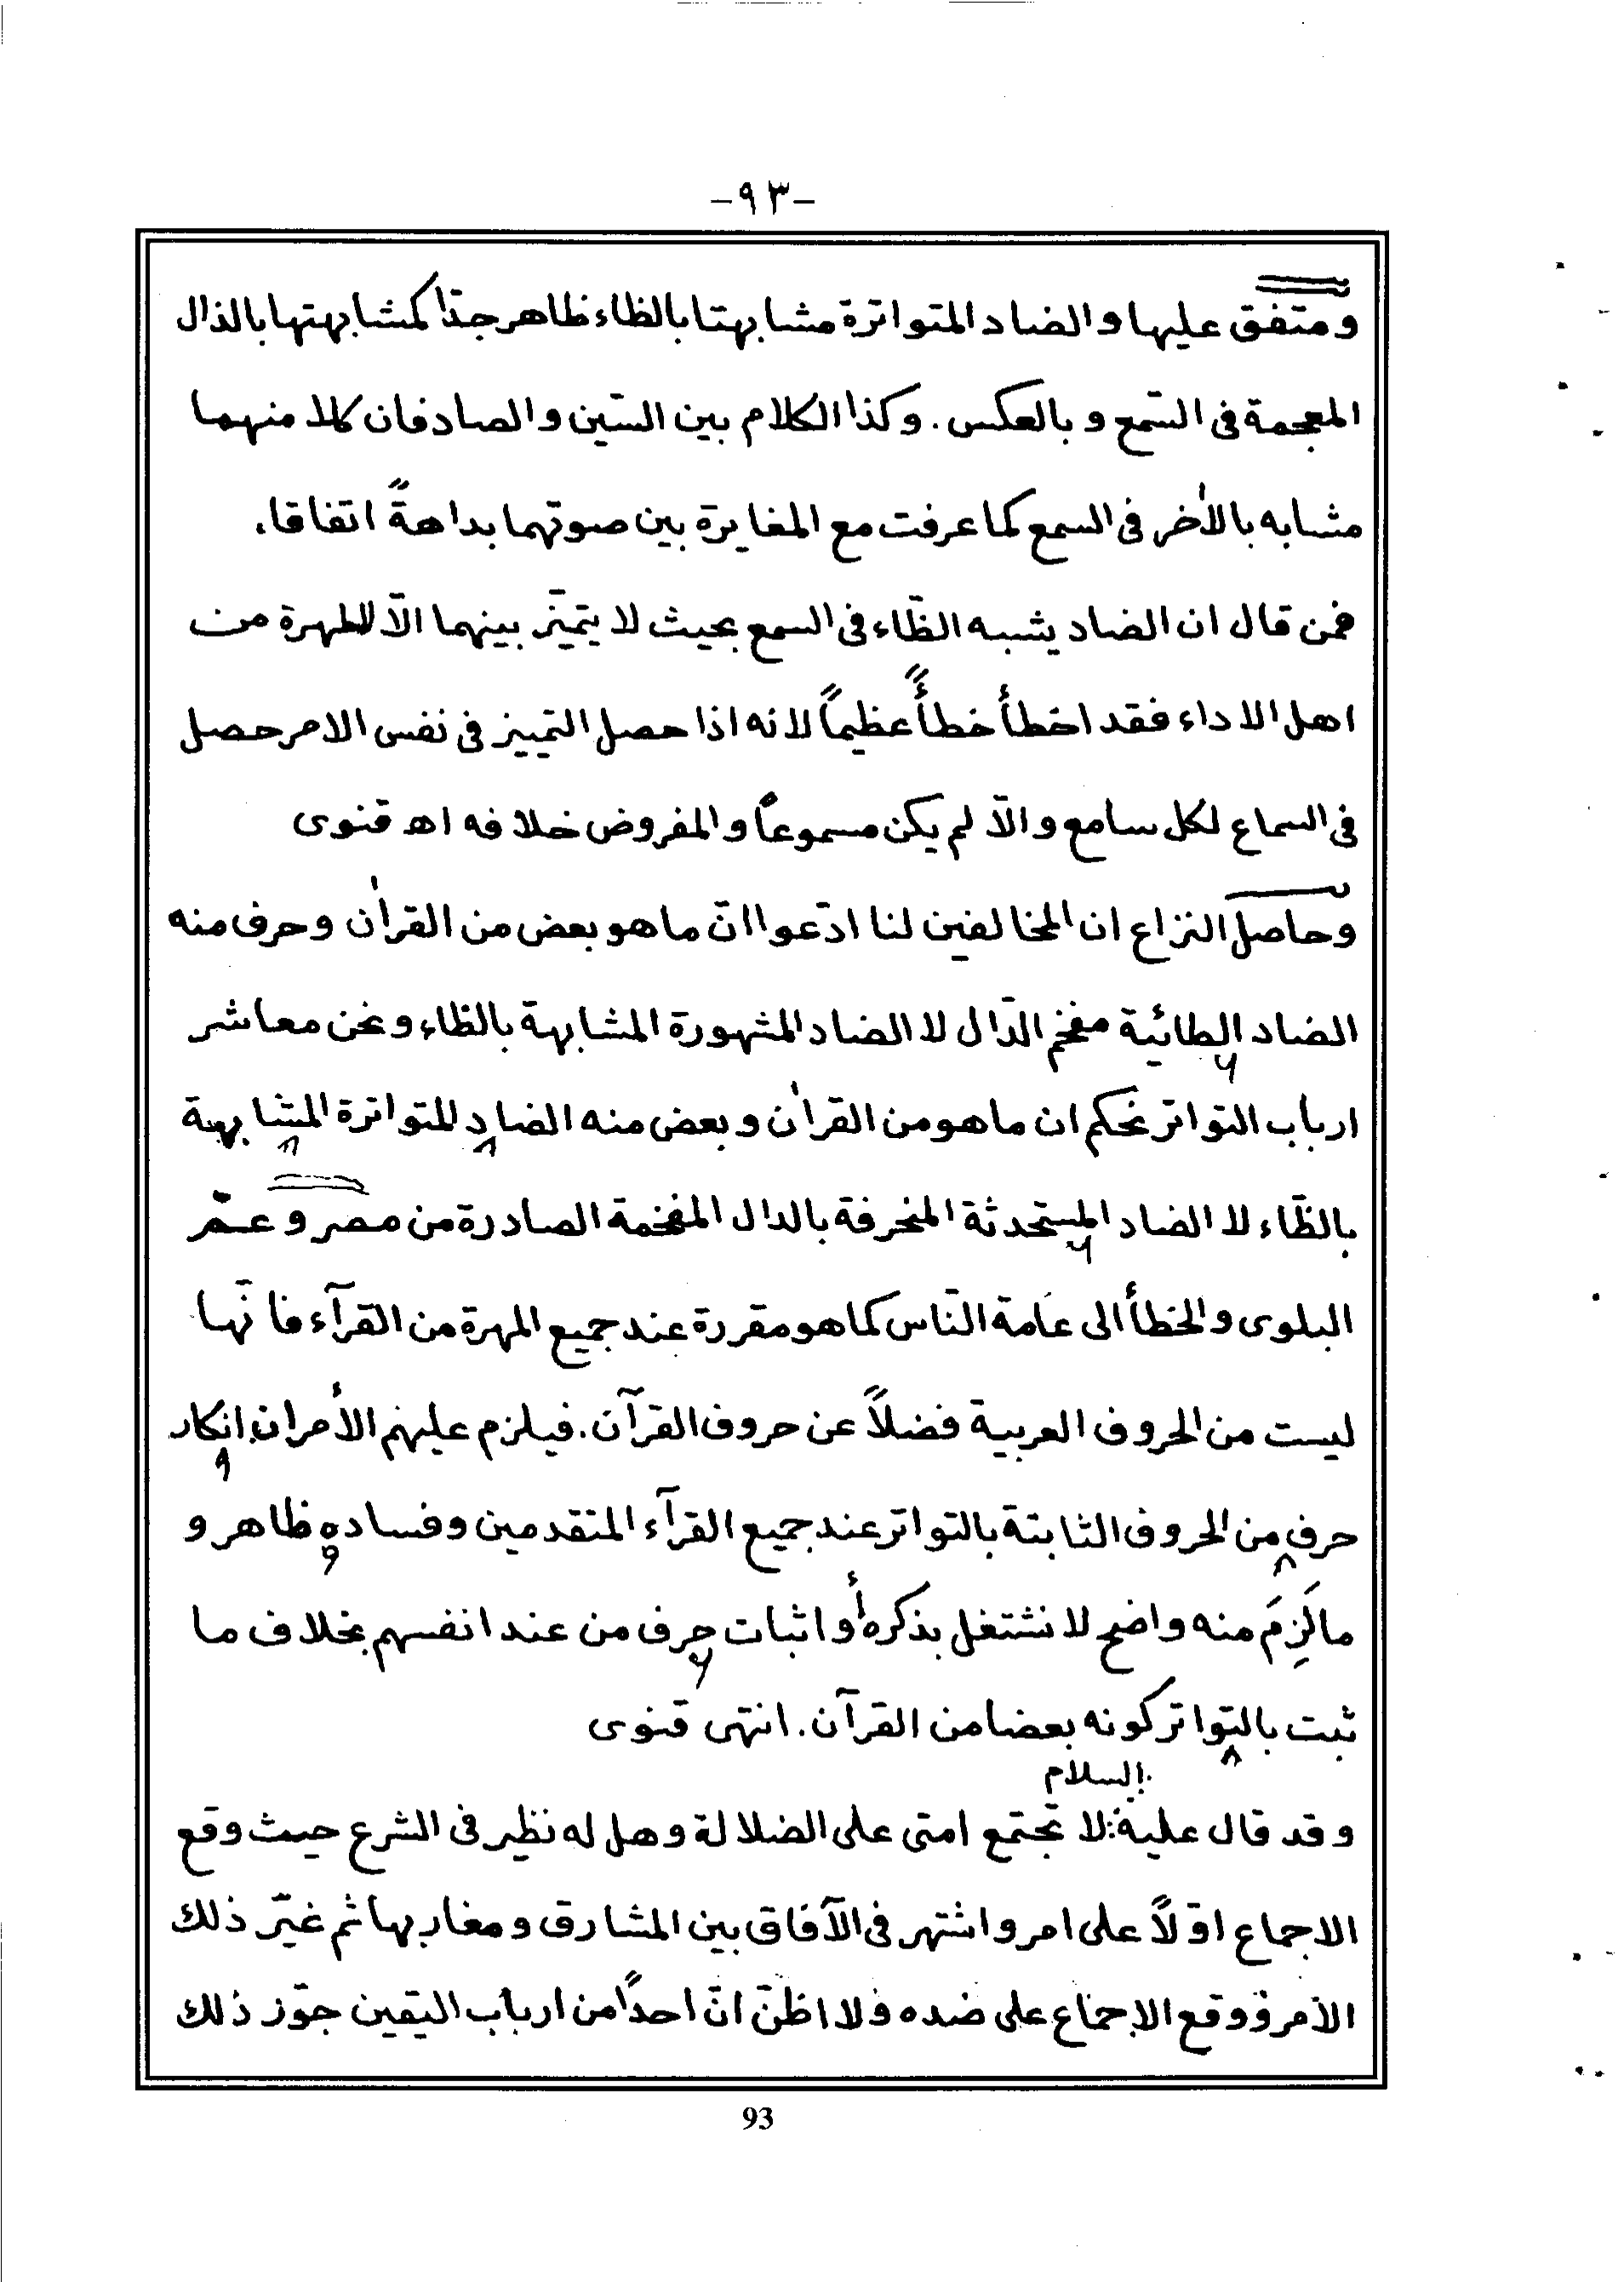 -٩٣-
ومتفق عليها والضاد المتواترة مشابهتا بالظاء ظاهر جدّا كمشابهتها بالذال
المعجمة فى السّمع و بالعكس. وكذا الكلام بين السّين والصاد فان كلا منهما
مشابه بالاٰخر فى السمع كما عرفت مع المغايرة بين صوتهما بداهةً اتفاقا،
فمن قال ان الضاد يشبه الظّاء فى السمع بحيث لا يتميّز بينهما الّا للمهرة من
اهل الاداء فقد اخطأ خطأً عظيماً لانه اذا حصل التمييز فى نفس الامر حصل
فى السماع لكل سامع والّا لم يكن مسموعاً والمفروض خلافه اه قنوى
وحاصل النزاع ان المخالفين لنا ادّعوا انّ ما هو بعض من القراٰن وحرف منه
الضاد الطائية مفخم الدّال لا الضاد المشهورة المشابهة بالظاء ونحن معاشر
ارباب التواتر نحكم ان ما هو من القراٰن وبعض منه الضاد للتواترة المشابهة
بالظّاء لا الضاد المستحدثة المنحرفة بالدال المفخمة الصادرة من مصر وعمّ
البلوى والخطأ الى عامة النّاس كما هو مقررة عند جميع المهرة من القرآء فانّها
ليست من الحروف العربية فضلاً عن حروف القرآن. فيلزم عليهم الأمران انكار
حرف من الحروف الثابتة بالتواتر عند جميع القرآء المتقدمين وفساده ظاهر و
ما لَزِمَ منه واضح لا نشتغل بذكره أو اثبات حرف من عند انفسهم بخلاف ما
ثبت بالتواتر كونه بعضا من القرآن. انتهى قنوى
السلام
وقد قال عليه: لا تجتمع امتى على الضلالة وهل له نظير فى الشرع حيث وقع
الاجماع اوّلاً على امر واشتهر فى الآفاق بين المشارق ومغاربها ثم غيّر ذلك
الأمر ووقع الاجماع على ضده ولا اظنّ انّ احداً من ارباب اليقين جوّز ذلك
93